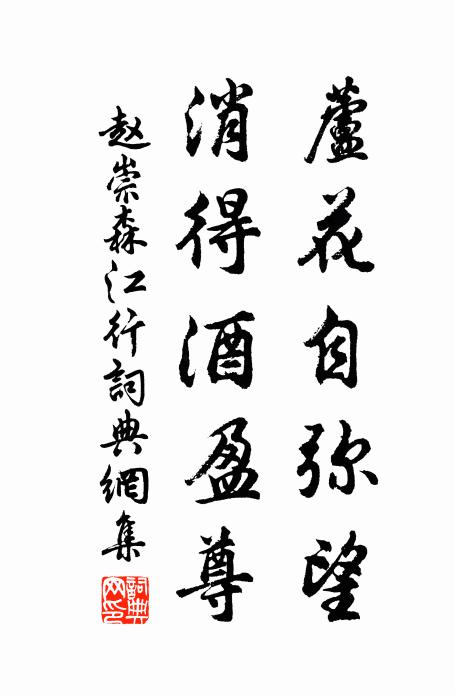 蘆花自弥望
消得酒盈尊
赵崇森江行詞典網集
詞典網印